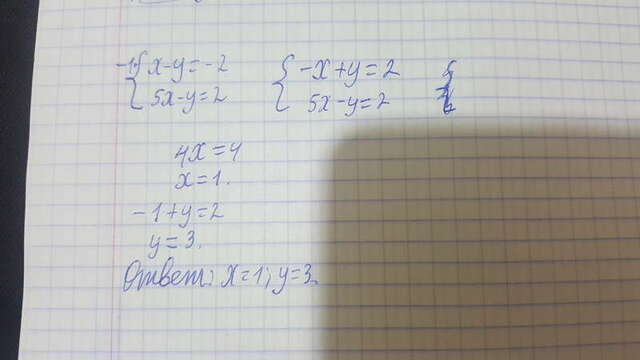 -1{x-y=-2 {-x+y=2
{5x-y=2 {5x-y=2
4x=4
x=1.
-1+y=2
y=3.
Ответ: x=1; y=3.